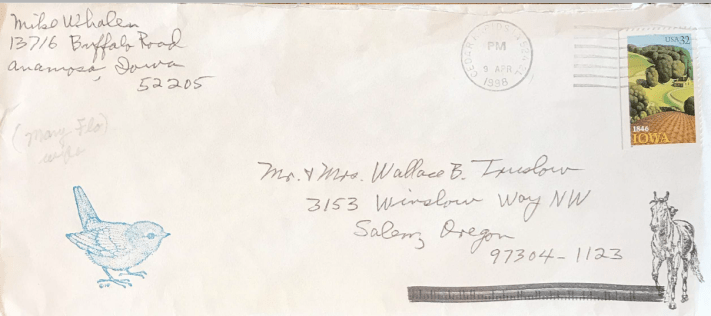 Mike Whalen
13716 Buffalo Road
Anamosa, Iowa
52205
(Mary Flo)
wife
CEDAR
PM
9 APR
1996
USA 32
1846
IOWA
Mr. & Mrs. Wallace B. Truslow
3153 Winslow Way NW
Salem, Oregon
97304-1123